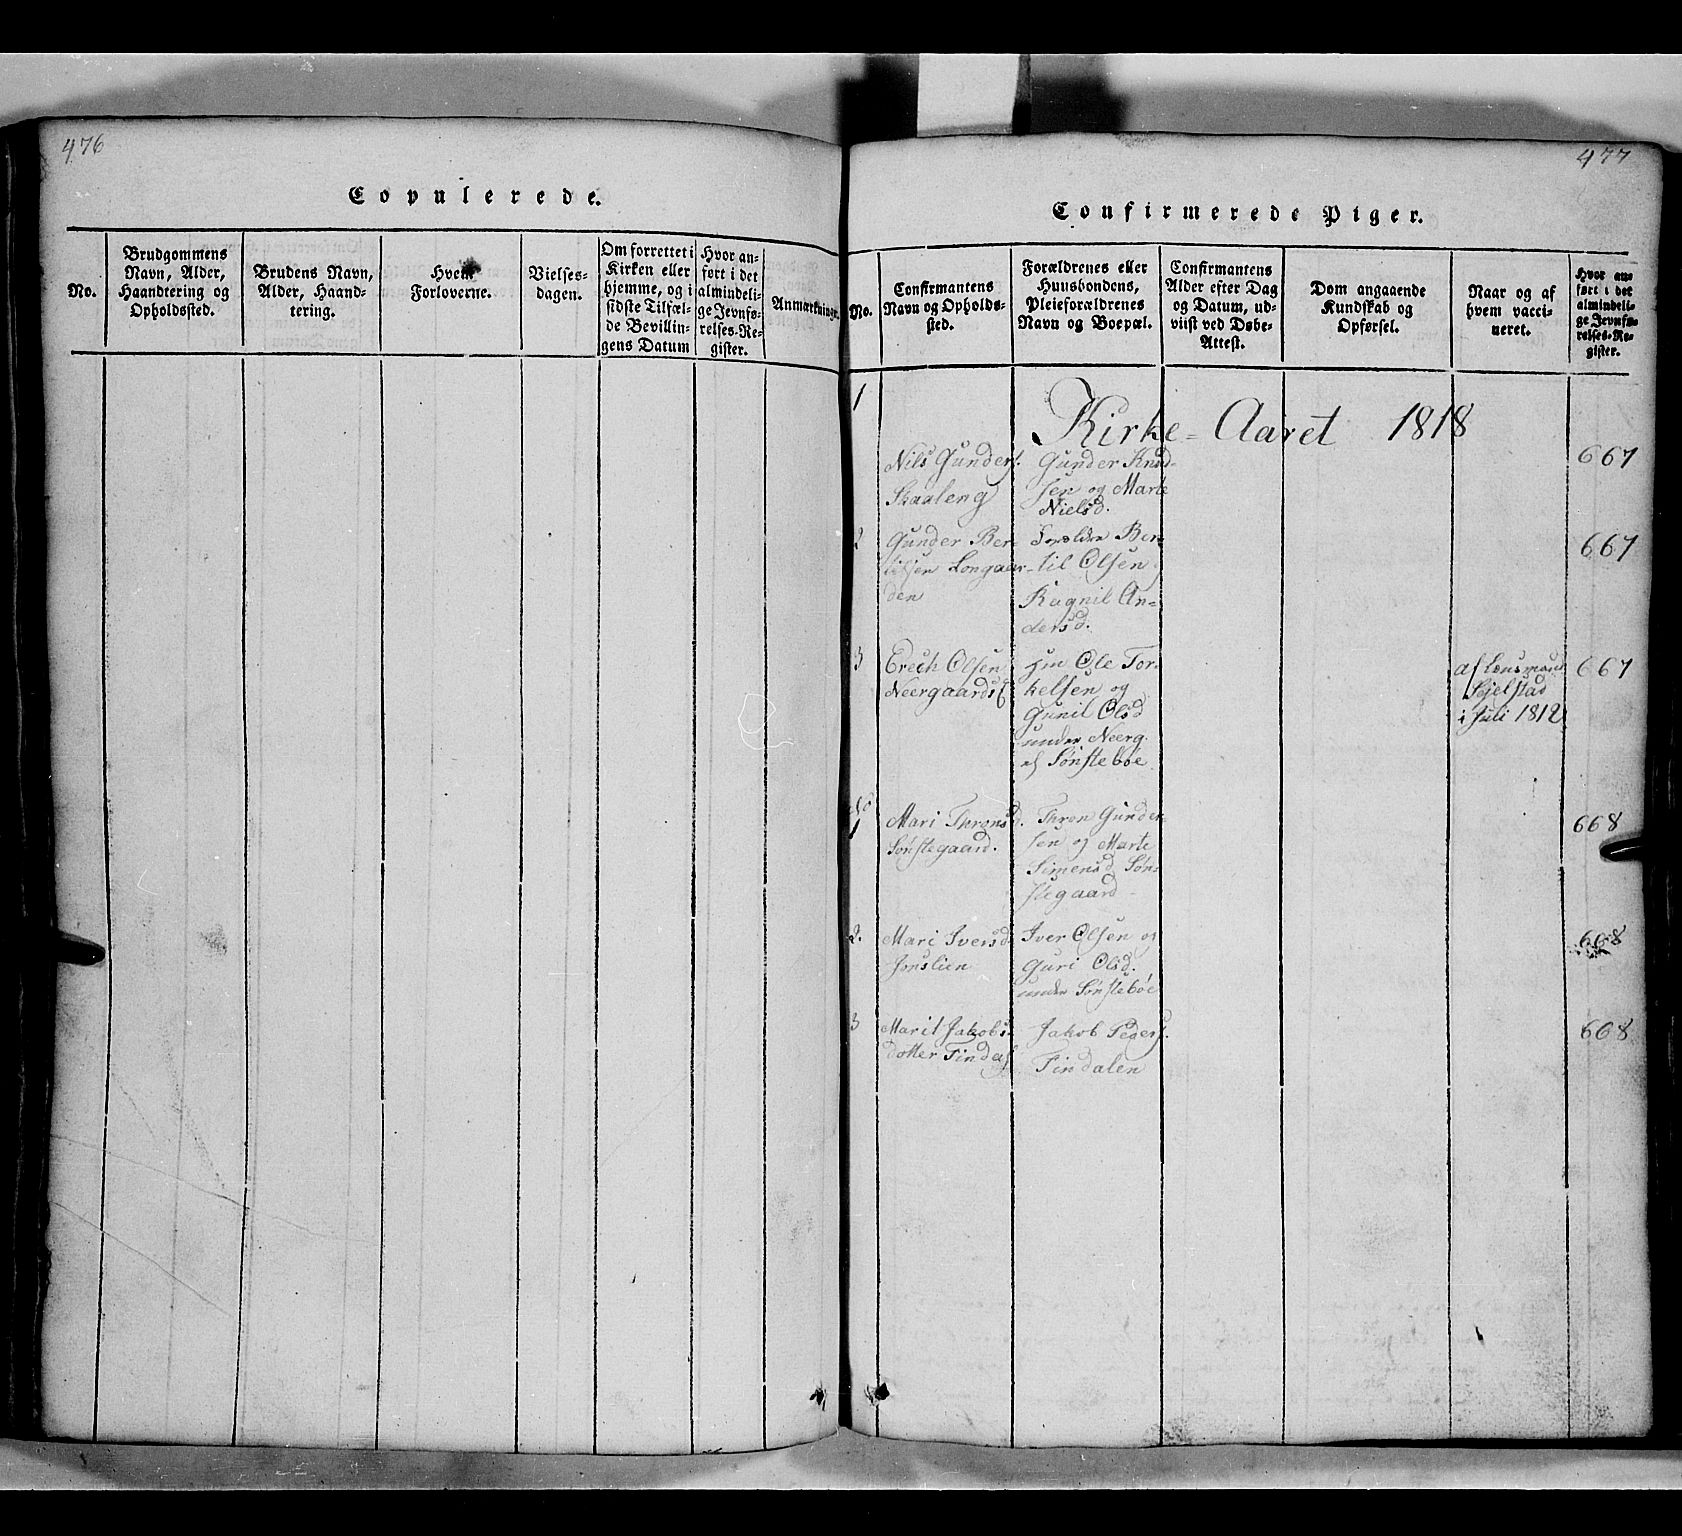 476
Copulerede.
No.
Brudgommens
Navn, Alder,
Haandtering og
Opholdssted.
Brudens Navn,
Alder, Haand-
tering.
Hvem
Forloverne.
Vielses-
dagen.
Om forrettet i
Kirken eller
hjemme, og i
sidste Tilfæl-
de Bevillin-
gens Datum
Hvor an-
ført i det
almindeli-
ge Jevnfø-
relses-Re-
gister.
Anmærkninger.
477
Confirmerede Piger.
No.
Confirmantens
Navn og Opholds-
sted.
Forældrenes eller
Huusbondens,
Pleieforældrenes
Navn og Boepæl.
Confirmantens
Alder efter Dag
og Datum, ud-
viist ved Døbe-
Attest.
Dom angaaende
Kundskab og
Opførsel.
Naar og af
hvem vacci-
neret.
Hvor an-
ført i det
almindeli-
ge Jevnfø-
relses-Re-
gister.
Kirke-Aaret 1818
1
Nils Gunders.
Skaaleng
Gunder Knud-
sen og Marte
Nielsd.
667
2
Gunder Ber-
tilsen Longaar-
den
Forældre Ber-
til Olsen
Ragnil An-
dersd.
667
3
Erech Olsen
Neergaards
Hm Ole Tor-
kelsen og
Gunil Olsd
under Neerg.
af Sønstebøe
af Lensmand
Sejelstad
i Juli 1812
667
No
1
Mari Thronsd.
Sønstegaard.
Thron Gunder-
sen og Marte
Simensd Søn-
stegaard
668
2.
Mari Iversd
Jonslien
Iver Olsen og
Guri Olsd.
under Sønstebøe
668
3
Marit Jakobs-
dotter Findal
Jakob Peders.
Findalen
668